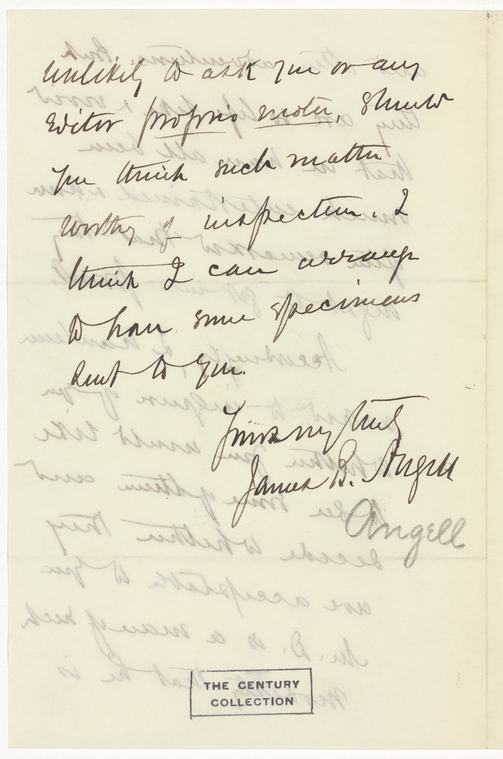 unlikely to ask you or any
Editor proprio motu. Should
you think such matter
worthy of inspection, I
think I can arrange
to have some specimens
sent to you.
Yours very truly
James B. Angell
Angell
THE CENTURY
COLLECTION